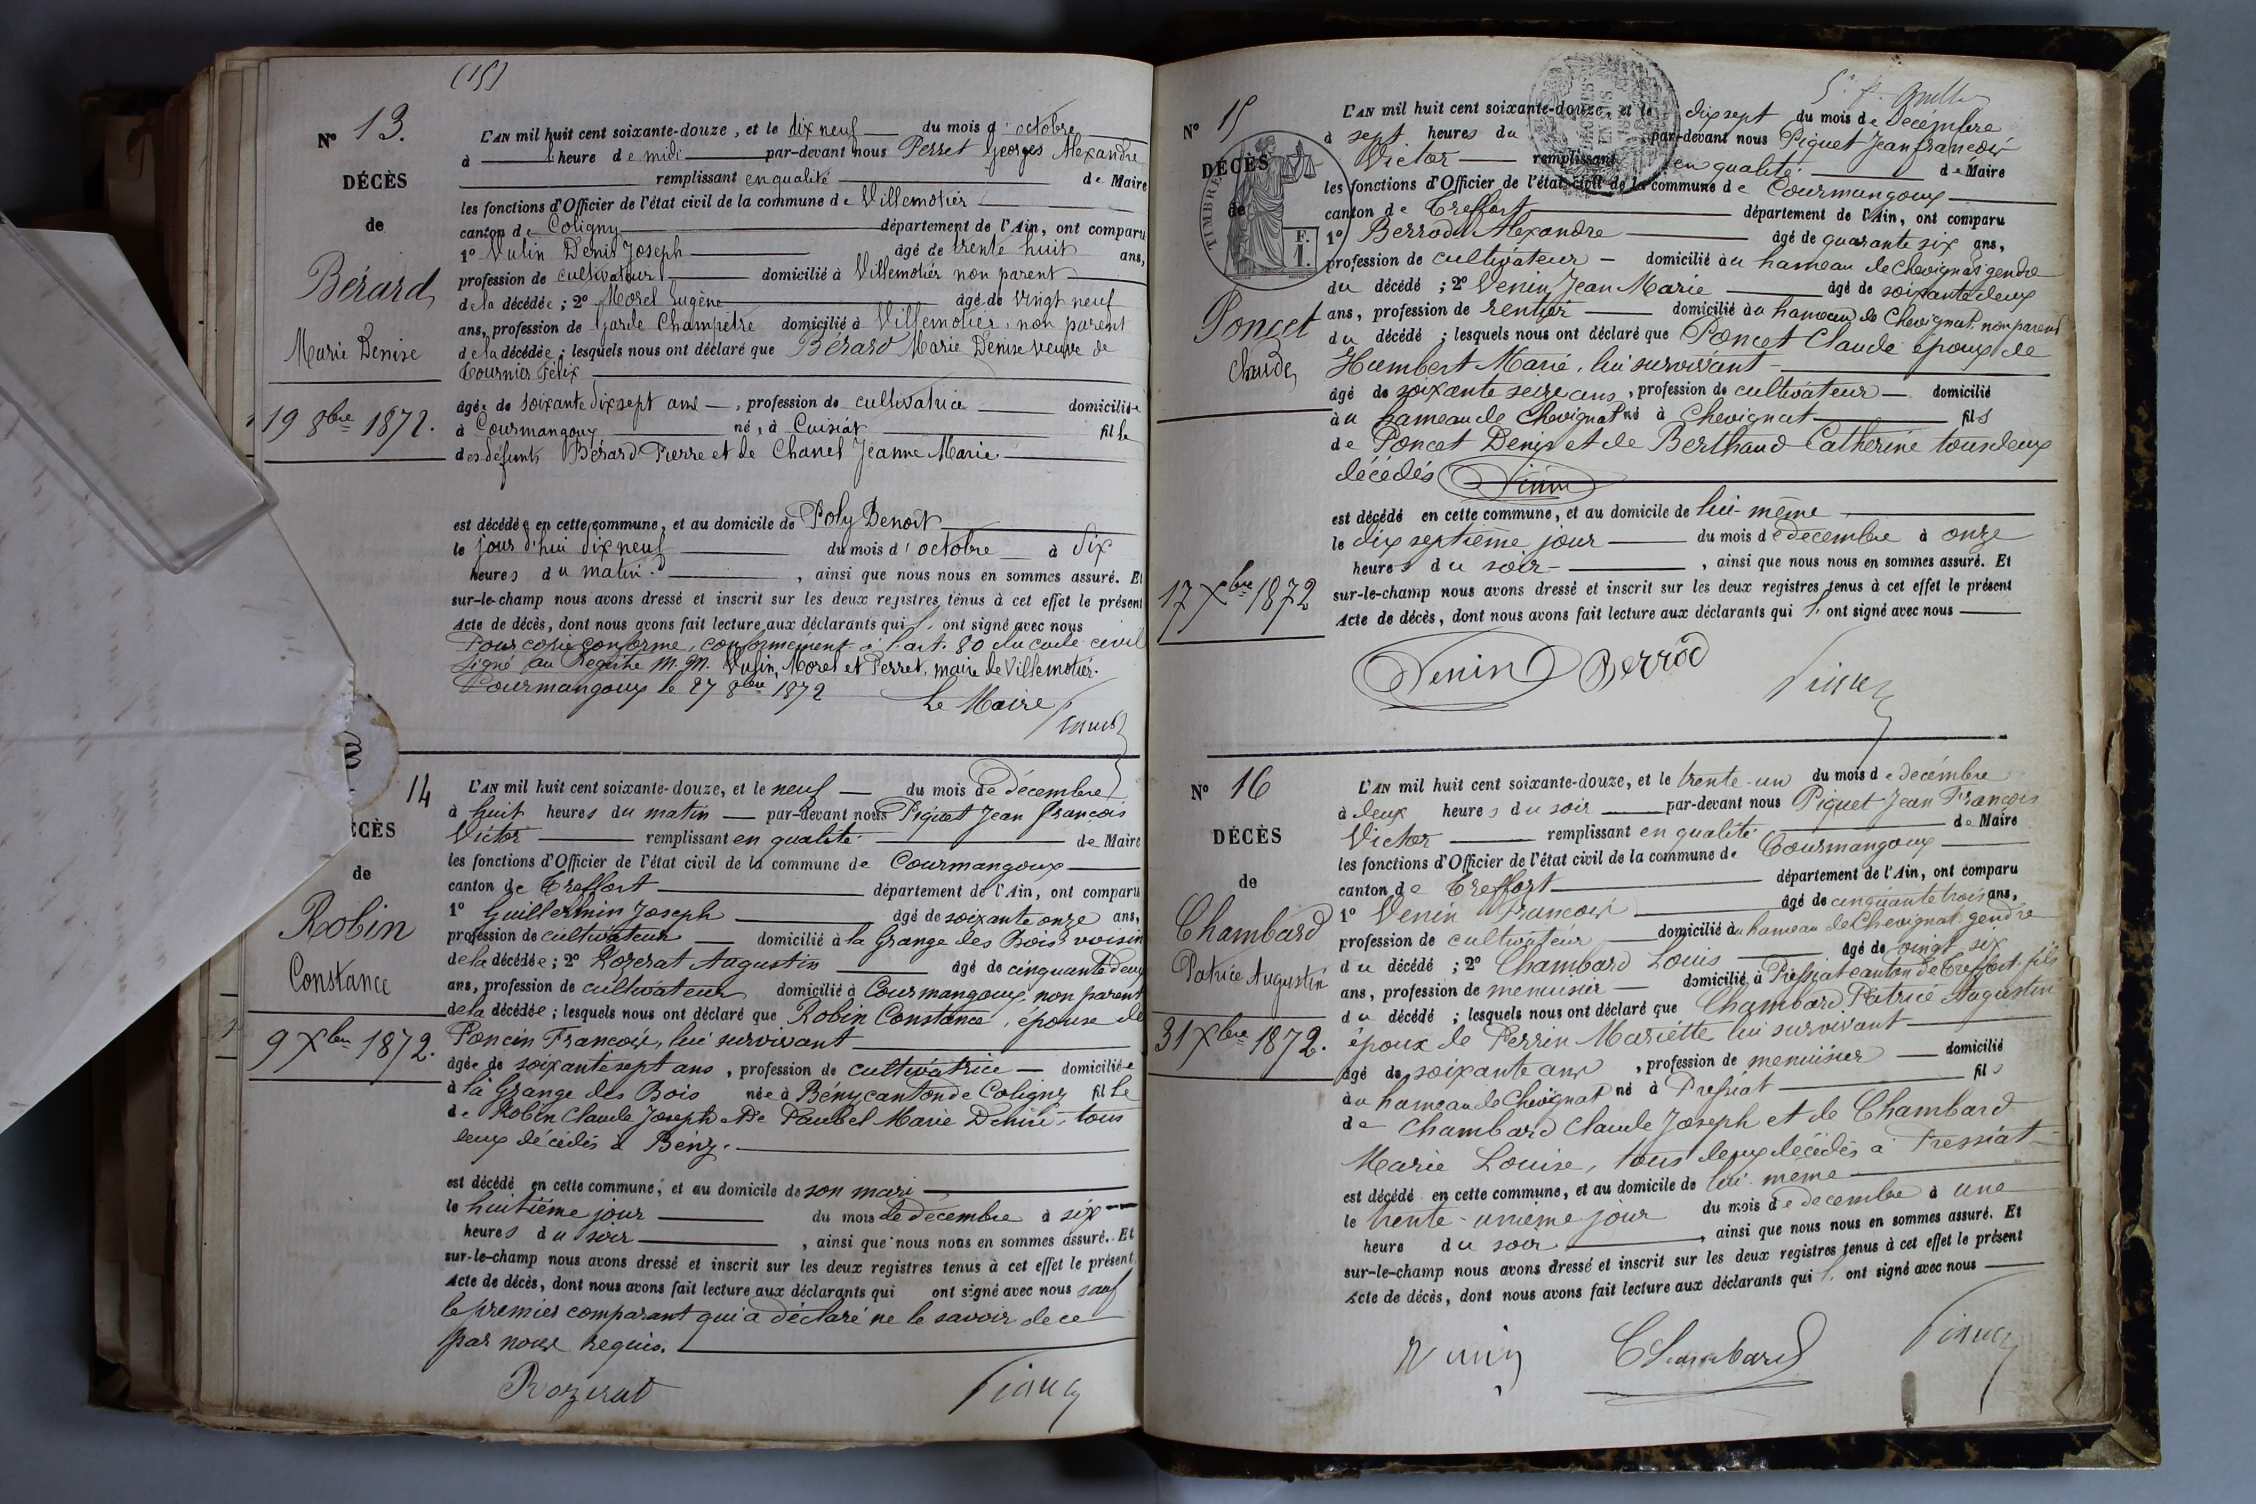 (15)
N° 13.
DÉCÈS
de
Bérard,
Marie Denise
19 8bre 1872.
L'AN mil huit cent soixante-douze, et le dix neuf du mois d'octobre
à heure de midi par-devant nous Perret Georges Alexandre
remplissant en qualité de Maire
les fonctions d'Officier de l'état civil de la commune de Villemotier
canton de Coligny département de l'Ain, ont comparu
1° Vulin Denis Joseph âgé de trente huit ans,
profession de cultivateur domicilié à Villemotier non parent
de la décédée ; 2° Morel Eugène âgé de vingt neuf
ans, profession de Garde Champêtre domicilié à Villemotier, non parent
de la décédée ; lesquels nous ont déclaré que Bérard Marie Denise veuve de
Tournier Félix
âgée de soixante dix sept ans, profession de cultivatrice domiciliée
à Courmangoux né, à Cuisiat fille
des défunts Bérard Pierre et de Chanel Jeanne Marie
est décédée en cette commune, et au domicile de Poly Benoit
le jourd'hui dix neuf du mois d'octobre à dix
heures du matin. , ainsi que nous nous en sommes assuré. Et
sur-le-champ nous avons dressé et inscrit sur les deux registres tenus à cet effet le présent
Acte de décès, dont nous avons fait lecture aux déclarants qui ont signé avec nous
Pour copie conforme, conformément à l'art. 80 du code civil
Signé au Registre M.M. Vulin, Morel et Perret, maire de Villemotier.
Courmangoux le 27 8bre 1872
Le Maire
14
CÈS
de
Robin
Constance
9 Xbre 1872.
L'AN mil huit cent soixante-douze, et le neuf du mois de décembre
à huit heures du matin par-devant nous Piquet Jean François
Victor remplissant en qualité de Maire
les fonctions d'Officier de l'état civil de la commune de Courmangoux
canton de Treffort département de l'Ain, ont comparu
1° Guillermin Joseph âgé de soixante onze ans,
profession de cultivateur domicilié à la Grange des Bois voisin
de la décédée ; 2° Rozerat Augustin âgé de cinquante deux
ans, profession de cultivateur domicilié à Courmangoux, non parent
de la décédée ; lesquels nous ont déclaré que Robin Constance, épouse de
Poncin François, lui survivant
âgée de soixante sept ans, profession de cultivatrice domiciliée
à la Grange des Bois née à Bény canton de Coligny fille
de Robin Claude Joseph et de Paubel Marie Denise, tous
deux décédés à Bény.
est décédé en cette commune, et au domicile de son mari
le huitième jour du mois de décembre à six
heures du soir , ainsi que nous nous en sommes assuré. Et
sur-le-champ nous avons dressé et inscrit sur les deux registres tenus à cet effet le présent
Acte de décès, dont nous avons fait lecture aux déclarants qui ont signé avec nous sauf
le premier comparant qui a déclaré ne le savoir de ce
par nous requis.
Rozerat
N° 15
DÉCÈS
de
TIMBRE
F.
1.
Poncet
Claude,
17 Xbre 1872
L'AN mil huit cent soixante-douze, et le dix sept du mois de décembre
à sept heures du par-devant nous Piquet Jean françois
Victor remplissant en qualité de Maire
les fonctions d'Officier de l'état civil de la commune de Courmangoux
canton de Treffort département de l'Ain, ont comparu
1° Berrod Alexandre âgé de quarante six ans,
profession de cultivateur domicilié au hameau de Chevignat gendre
du décédé ; 2° Venin Jean Marie âgé de soixante deux
ans, profession de rentier domicilié au hameau de Chevignat, non parent
du décédé ; lesquels nous ont déclaré que Poncet Claude époux de
Humbert Marie, lui survivant
âgé de soixante seize ans, profession de cultivateur domicilié
au hameau de Chevignat né à Chevignat fils
de Poncet Denis et de Berthaud Catherine tous deux
décédés
est décédé en cette commune, et au domicile de lui-même
le dix septième jour du mois de décembre à onze
heures du soir , ainsi que nous nous en sommes assuré. Et
sur-le-champ nous avons dressé et inscrit sur les deux registres tenus à cet effet le présent
Acte de décès, dont nous avons fait lecture aux déclarants qui ont signé avec nous
Venin Berrod
N° 16
DÉCÈS
de
Chambard
Patrice Augustin
31 Xbre 1872.
L'AN mil huit cent soixante-douze, et le trente-un du mois de décembre
à deux heures du soir par-devant nous Piquet Jean François
Victor remplissant en qualité de Maire
les fonctions d'Officier de l'état civil de la commune de Courmangoux
canton de Treffort département de l'Ain, ont comparu
1° Venin François âgé de cinquante trois ans,
profession de cultivateur domicilié au hameau de Chevignat gendre
du décédé ; 2° Chambard Louis âgé de vingt six
ans, profession de menuisier domicilié à Pressiat canton de Treffort fils
du décédé ; lesquels nous ont déclaré que Chambard Patrice Augustin
époux de Perrin Mariette lui survivant
âgé de soixante ans, profession de menuisier domicilié
au hameau de Chevignat né à Pressiat fils
de Chambard Claude Joseph et de Chambard
Marie Louise, tous deux décédés à Pressiat
est décédé en cette commune, et au domicile de lui même
le trente-unième jour du mois de décembre à une
heure du soir , ainsi que nous nous en sommes assuré. Et
sur-le-champ nous avons dressé et inscrit sur les deux registres tenus à cet effet le présent
Acte de décès, dont nous avons fait lecture aux déclarants qui ont signé avec nous
Venin Chambard